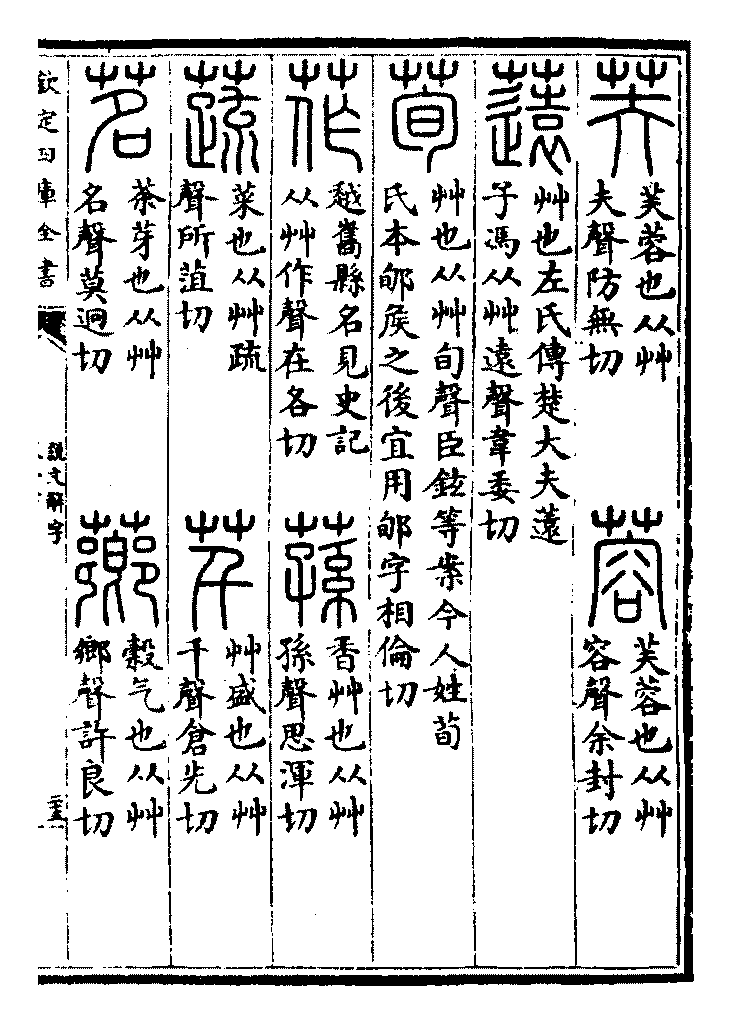 芙
芙蓉也从艸
夫聲防無切
蓉
芙蓉也从艸
容聲余封切
薳
艸也左氏傳楚大夫薳
子馮从艸遠聲韋委切
荀
艸也从艸旬聲臣鉉等案今人姓荀
氏本郇矦之後宜用郇字相倫切
莋
越嶲縣名見史記
从艸作聲在各切
蓀
香艸也从艸
孫聲思渾切
蔬
菜也从艸疏
聲所葅切
芊
艸盛也从艸
千聲倉先切
茗
茶芽也从艸
名聲莫迥切
薌
穀气也从艸
鄉聲許良切
欽定四庫全書
說文解字